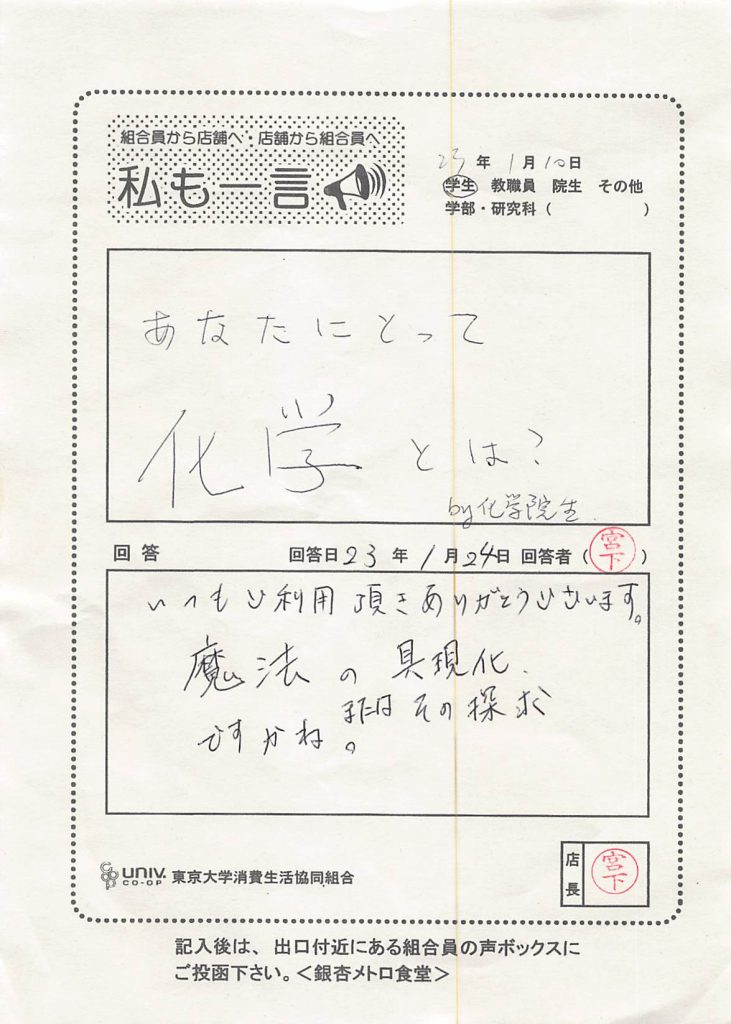 組合員から店舗へ・店舗から組合員へ
私も一言
23年1月10日
学生 教職員 院生 その他
学部・研究科（ ）
あなたにとって
化学とは？
by化学院生.
回答 回答日23年1月24日 回答者（宮下）
いつもご利用頂きありがとうございます。
魔法の具現化、
またはその探求
ですかね。
店長 宮下
UNIV. CO-OP 東京大学消費生活協同組合
記入後は、出口付近にある組合員の声ボックスに
ご投函下さい。＜銀杏メトロ食堂＞